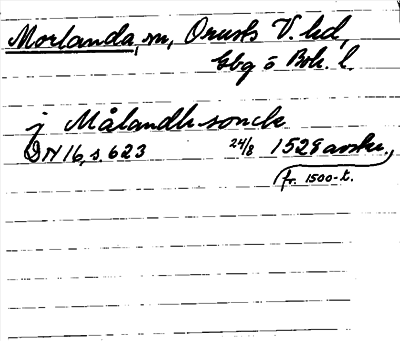 Morlanda, sn, Orusts V. hd,
Gbg o Boh. l.
j Målandh sonck
DN 16, s. 623 24/8 1528 avskr.,
fr. 1500-t.